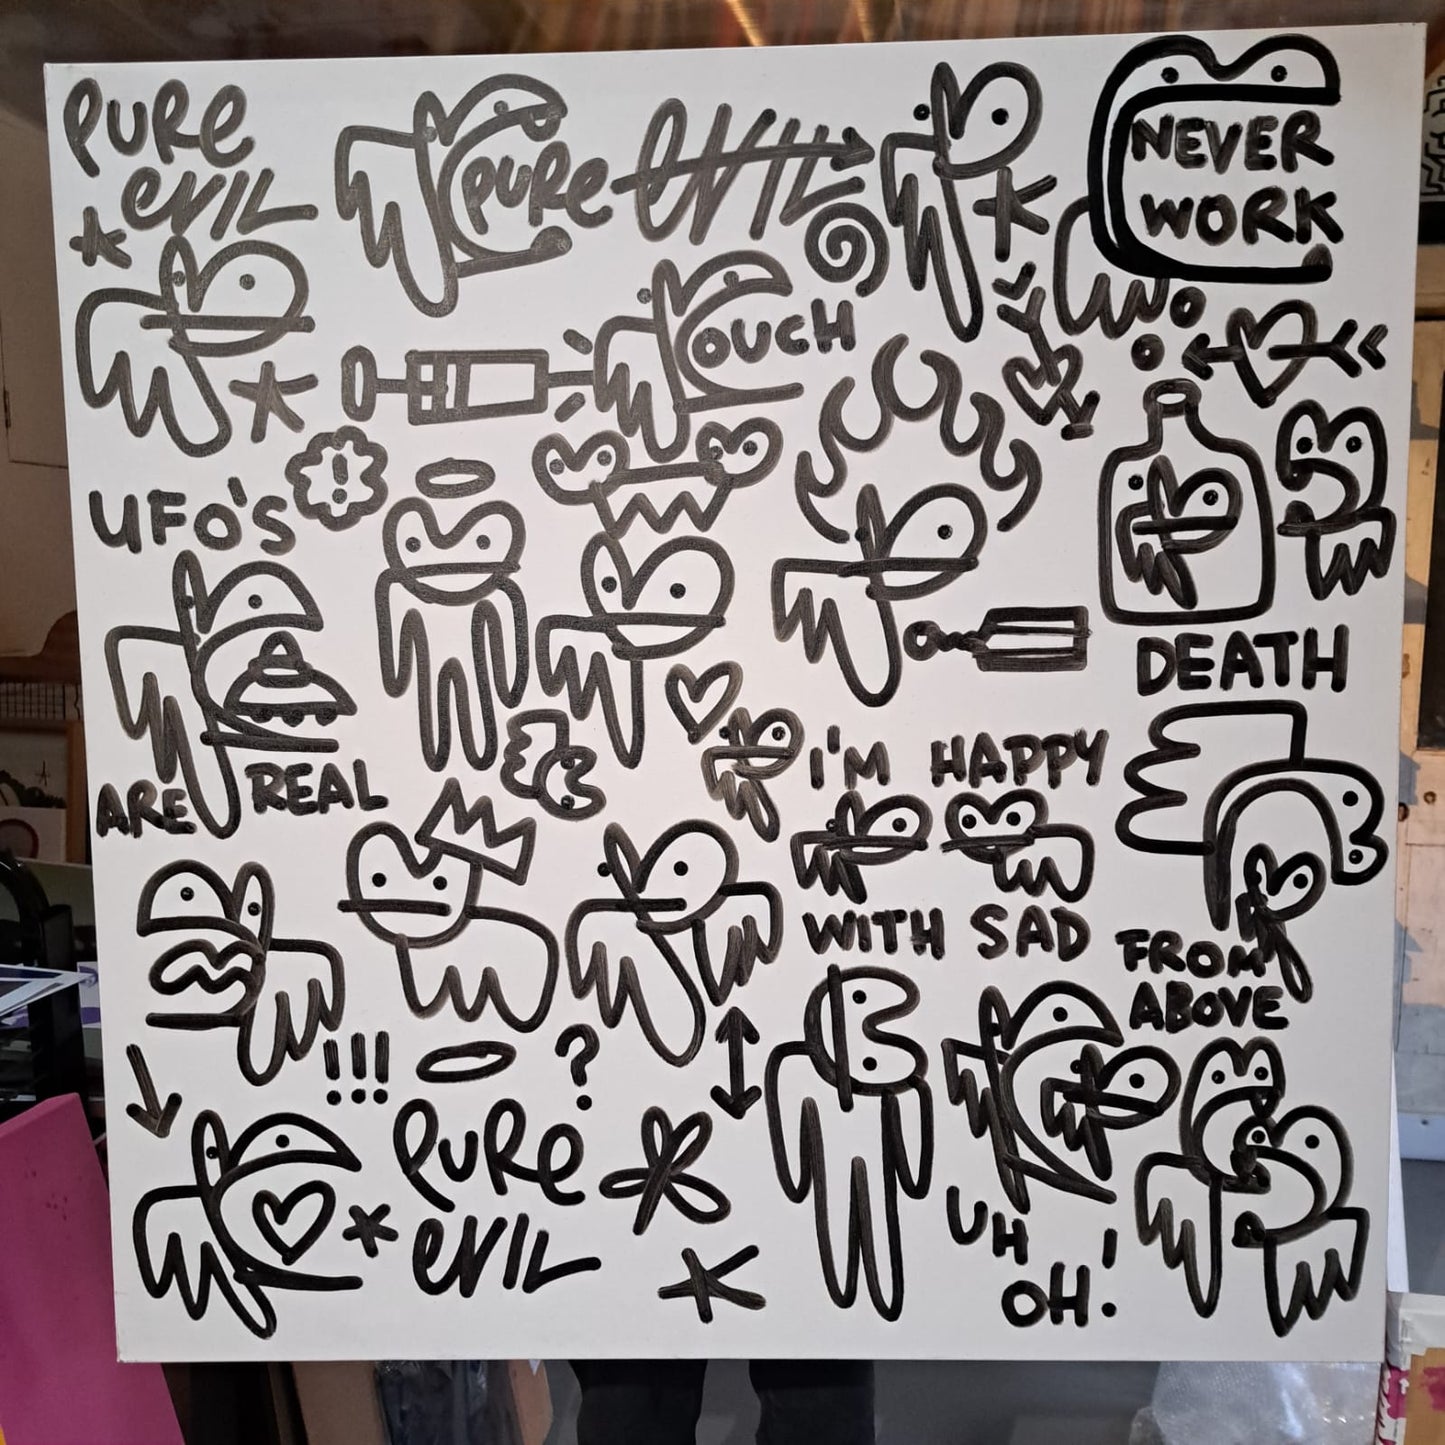 PURE
EVIL
PURE EVIL
NEVER
WORK
OUCH
UFO'S
!
ARE REAL
DEATH
FROM
ABOVE
I'M HAPPY
WITH SAD
!!!
?
PURE
EVIL
UH
OH!